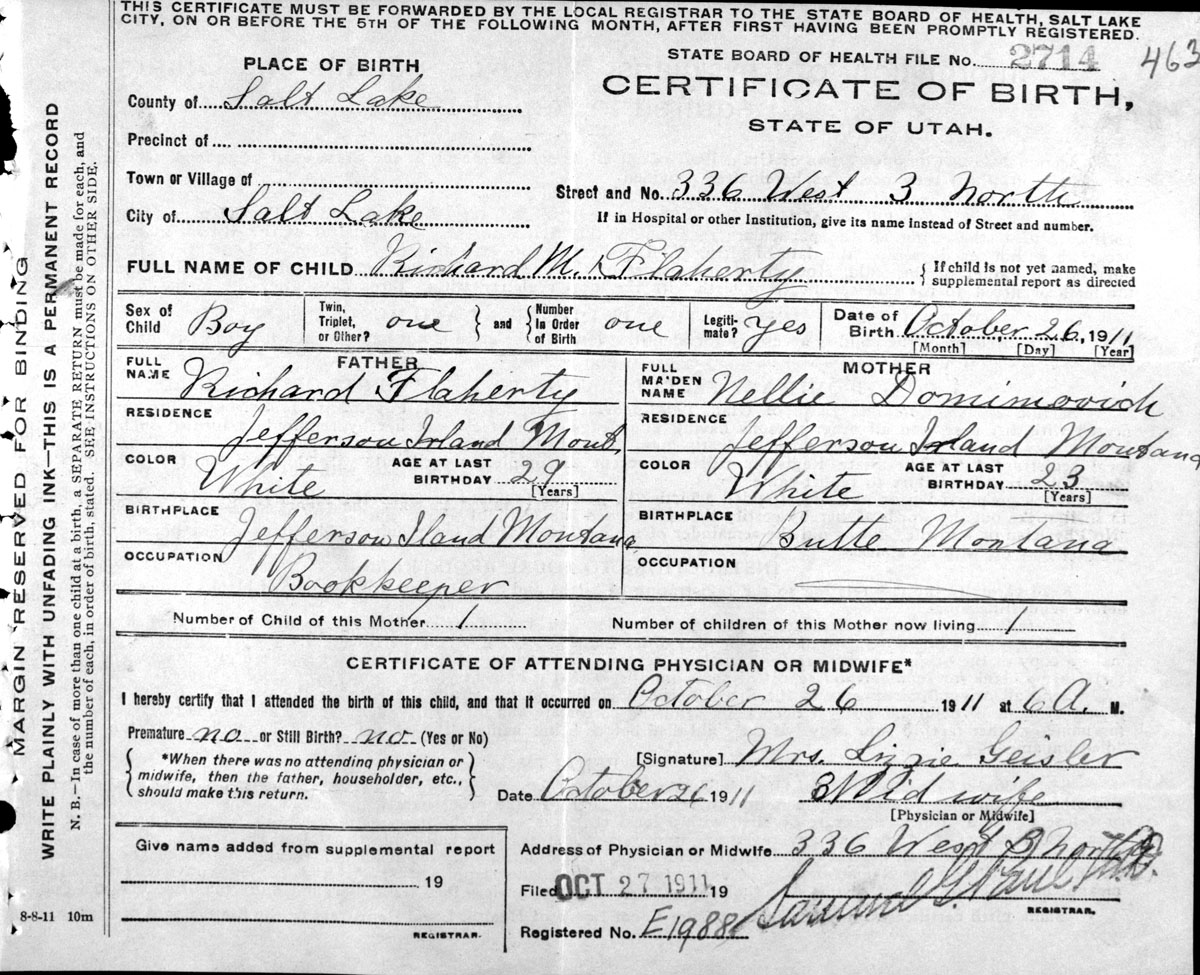 THIS CERTIFICATE MUST BE FORWARDED BY THE LOCAL REGISTRAR TO THE STATE BOARD OF HEALTH, SALT LAKE
CITY, ON OR BEFORE THE 5TH OF THE FOLLOWING MONTH, AFTER FIRST HAVING BEEN PROMPTLY REGISTERED.
STATE BOARD OF HEALTH FILE No. 2714 463
PLACE OF BIRTH
CERTIFICATE OF BIRTH,
STATE OF UTAH.
County of Salt Lake
Precinct of
Town or Village of
Street and No. 336 West 3 North
City of Salt Lake
If in Hospital or other Institution, give its name instead of Street and number.
FULL NAME OF CHILD Richard M. Flaherty
{ If child is not yet named, make
supplemental report as directed
Sex of Child Boy
Twin, Triplet, or Other? one } and { Number In Order of Birth one
Legiti-mate? yes
Date of Birth October 26, 1911
[Month] [Day] [Year]
FATHER
FULL NAME Richard Flaherty
RESIDENCE Jefferson Irland Mont.
COLOR White AGE AT LAST BIRTHDAY 29
[Years]
BIRTHPLACE Jefferson Iland Montana
OCCUPATION Bookkeeper
MOTHER
FULL MA'DEN NAME Nellie Domimovich
RESIDENCE Jefferson Irland Montana
COLOR White AGE AT LAST BIRTHDAY 23
[Years]
BIRTHPLACE Butte Montana
OCCUPATION
Number of Child of this Mother 1 Number of children of this Mother now living 1
CERTIFICATE OF ATTENDING PHYSICIAN OR MIDWIFE*
I hereby certify that I attended the birth of this child, and that it occurred on October 26 1911 at 6 A. M.
Premature no or Still Birth? no (Yes or No)
{ *When there was no attending physician or
midwife, then the father, householder, etc.,
should make this return. }
[Signature] Mrs. Lizzie Geisler
Date October 26 1911 Mid wife
[Physician or Midwife]
Give name added from supplemental report
19
REGISTRAR.
Address of Physician or Midwife 336 West 3 North
Filed OCT 27 1911 19
Samuel G. Paul
REGISTRAR.
Registered No. E1988
8-8-11 10m
MARGIN RESERVED FOR BINDING
WRITE PLAINLY WITH UNFADING INK—THIS IS A PERMANENT RECORD
N. B.—In case of more than one child at a birth, a SEPARATE RETURN must be made for each, and
the number of each, in order of birth, stated. SEE INSTRUCTIONS ON OTHER SIDE.